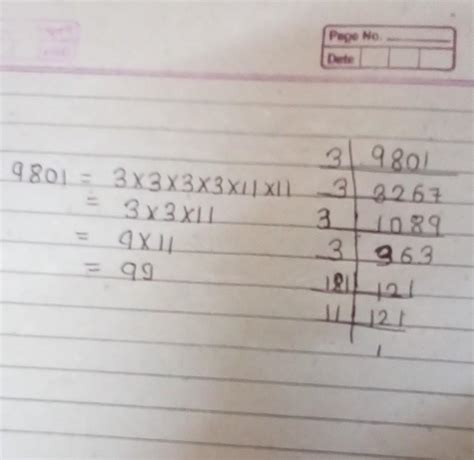 Page No.
Date
9801 = 3×3×3×3×11×11
= 3×3×11
= 9×11
= 99
3 | 9801
3 | 3267
3 | 1089
3 | 363
121
11 | 121
1